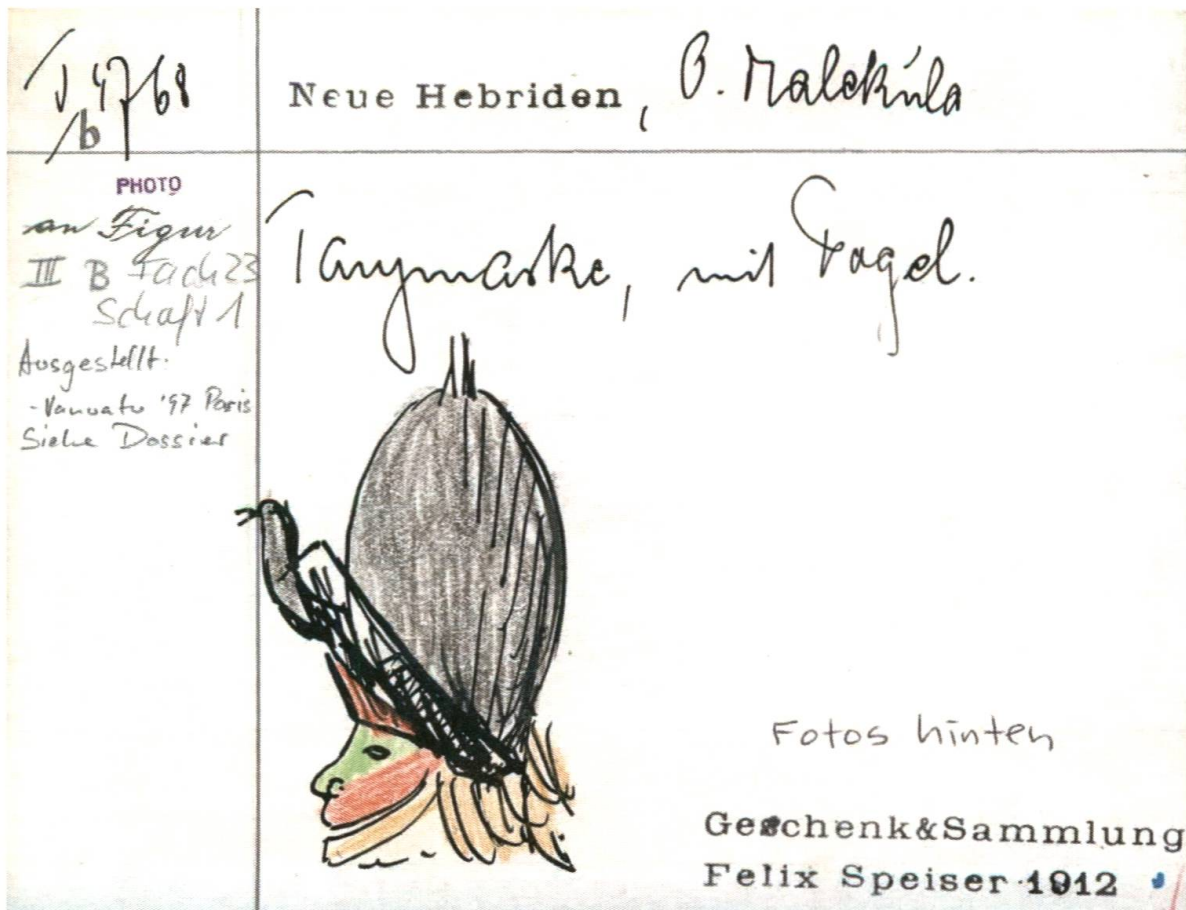 V b 4768
Neue Hebriden, O. Malekúla
PHOTO
an Figur
III B Fach 23
Schaft 1
Ausgestellt:
- Vanuatu '97 Paris
Siehe Dossier
Tanzmaske, mit Vogel.
Fotos hinten
Geschenk&Sammlung
Felix Speiser 1912